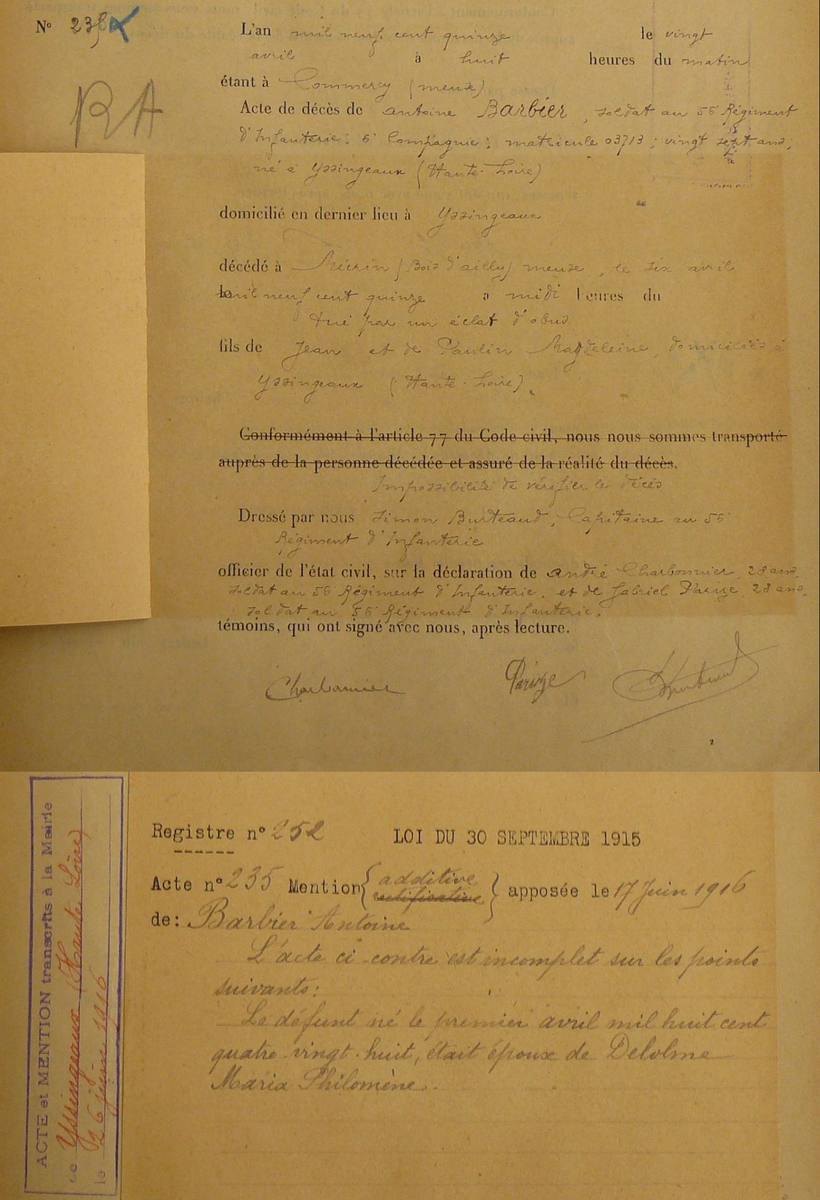 N° 235 L'an mil neuf cent quinze le vingt
avril à huit heures du matin
étant à Commercy (Meuse)
RA
Acte de décès de Antoine Barbier, soldat au 56 Régiment
d'Infanterie; 6 Compagnie; matricule 03713; vingt sept ans;
né à Yssingeaux (Haute-Loire)
domicilié en dernier lieu à Yssingeaux
décédé à Mécrin (Bois d'ailly) meuse, le six avril
mil neuf cent quinze a midi heures du
tué par un éclat d'obus
fils de Jean et de Paulin Magdeleine, domiciliés à
Yssingeaux (Haute-Loire).
Conformément à l'article 77 du Code civil, nous nous sommes transporté
auprès de la personne décédée et assuré de la réalité du décès.
Impossibilité de vérifier le décès
Dressé par nous Simon Burteaud, Capitaine au 56
Régiment d'Infanterie
officier de l'état civil, sur la déclaration de André Charbonnier, 28 ans,
soldat au 56 Régiment d'Infanterie, et de Gabriel 28 ans,
soldat au 56 Régiment d'Infanterie,
témoins, qui ont signé avec nous, après lecture.
Charbonnier
2
Registre n° 252 LOI DU 30 SEPTEMBRE 1915
Acte n° 235 Mention { additive rectificative } apposée le 17 Juin 1916
de: Barbier Antoine
L'acte ci-contre est incomplet sur les points
suivants:
Le défunt né le premier avril mil huit cent
quatre vingt-huit, était époux de Delolme
Maria Philomène.
ACTE et MENTION transcrits à la Mairie
de Yssingeaux (Haute Loire)
le 26 juin 1916